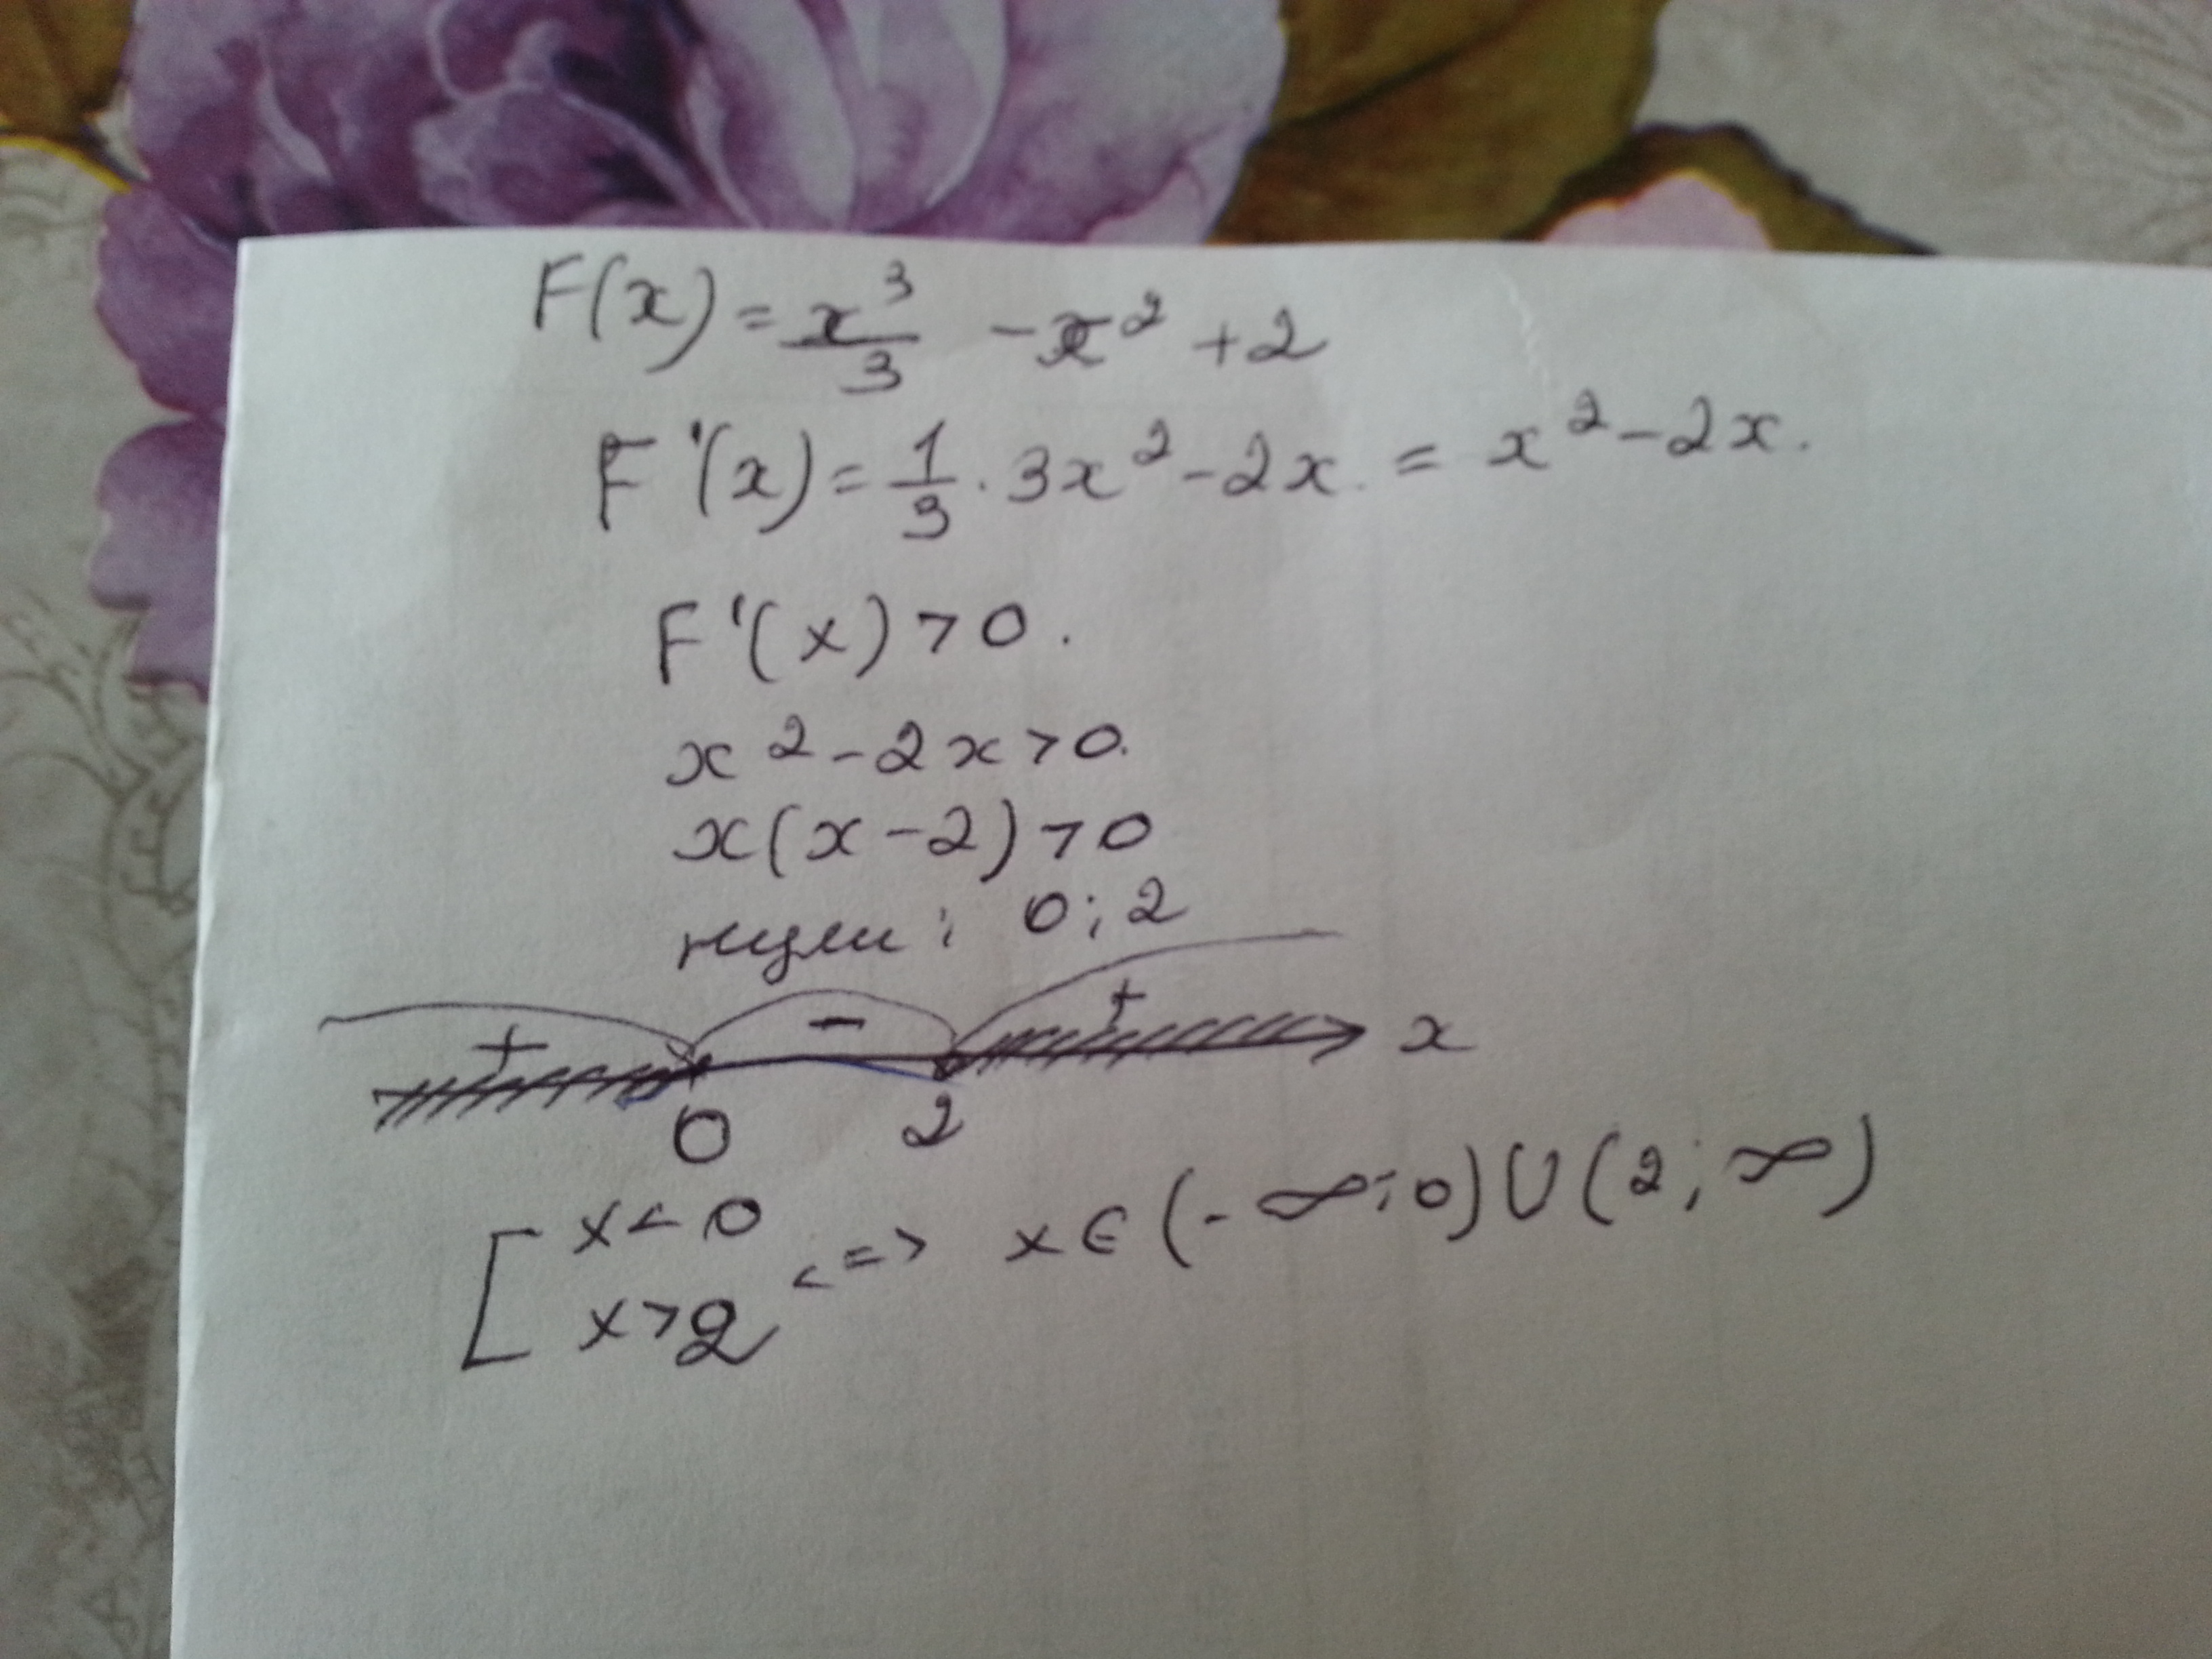 F(x) = x³/3 - x² + 2
F'(x) = 1/3 · 3x² - 2x. = x² - 2x.
F'(x) > 0.
x² - 2x > 0.
x(x - 2) > 0
нули: 0; 2
+ - + x
0 2
[ x < 0
x > 2 <=> x ∈ (-∞; 0) ∪ (2; ∞)